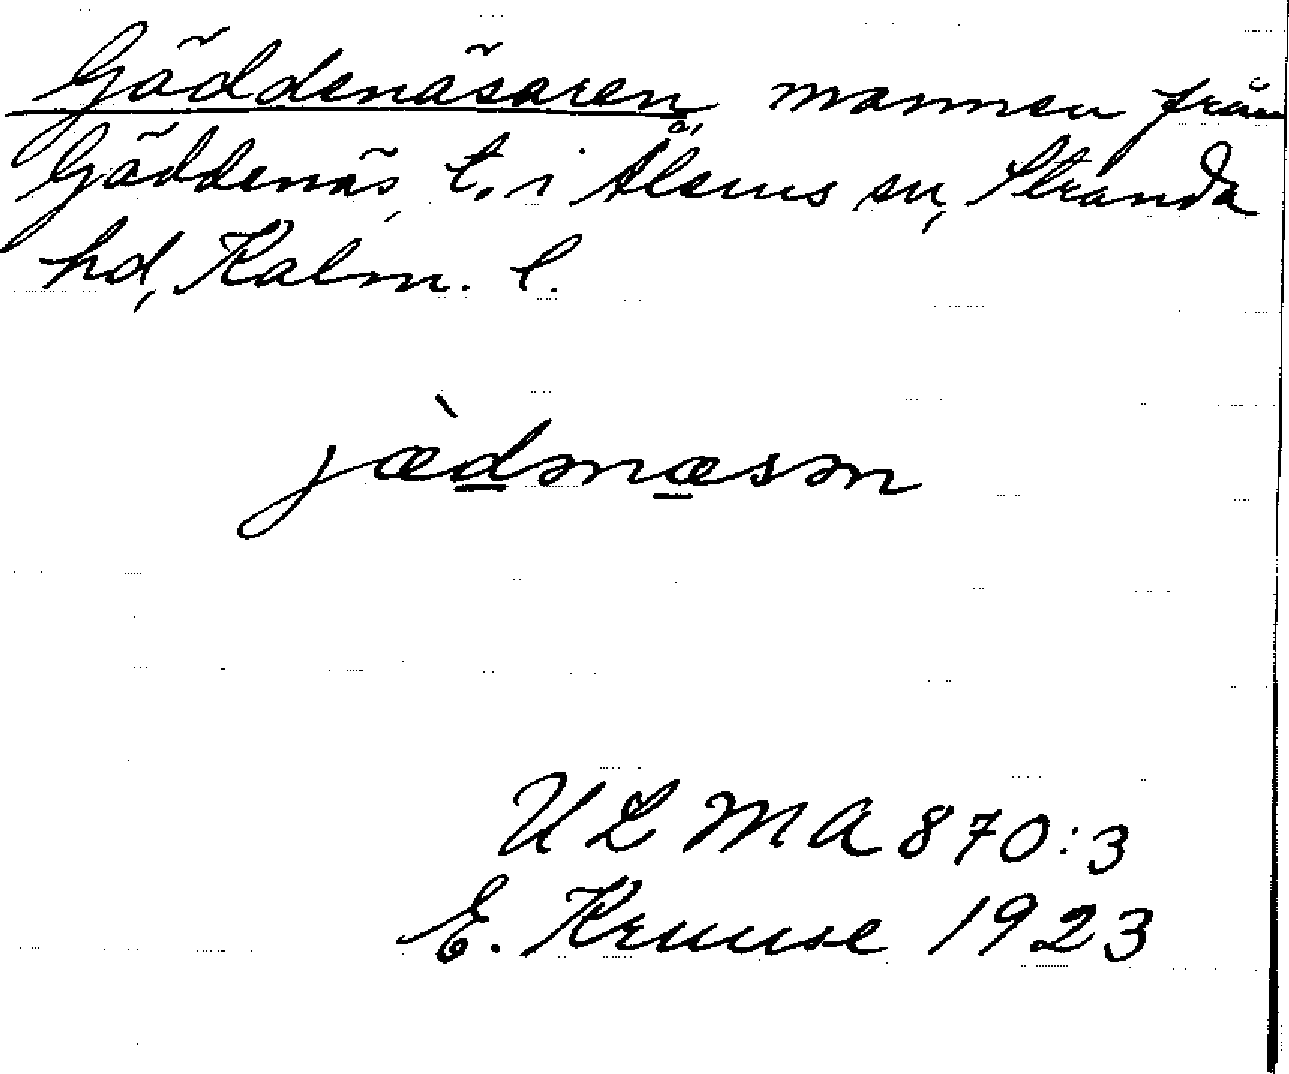 Gäddenäsaren, mannen från
Gäddenäs, t. i Ålems sn, Stranda
hd, Kalm. l.
jæ̀dənæsən
ULMA 870:3
E. Kruuse 1923